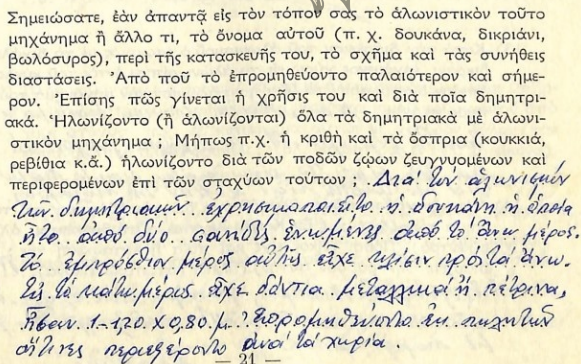 Σημειώσατε, ἐὰν ἀπαντᾷ εἰς τὸν τόπον σας τὸ ἁλωνιστικὸν τοῦτο
μηχάνημα ἢ ἄλλο τι, τὸ ὄνομα αὐτοῦ (π. χ. δουκάνα, δικριάνι,
βωλόσυρος), περὶ τῆς κατασκευῆς του, τὸ σχῆμα καὶ τὰς συνήθεις
διαστάσεις. Ἀπὸ ποῦ τὸ ἐπρομηθεύοντο παλαιότερον καὶ σήμε-
ρον. Ἐπίσης πῶς γίνεται ἡ χρῆσις του καὶ διὰ ποῖα δημητρι-
ακά. Ἡλωνίζοντο (ἢ ἁλωνίζονται) ὅλα τὰ δημητριακὰ μὲ ἁλωνι-
στικὸν μηχάνημα ; Μήπως π.χ. ἡ κριθὴ καὶ τὰ ὄσπρια (κουκκιά,
ρεβίθια κ.ἄ.) ἡλωνίζοντο διὰ τῶν ποδῶν ζῴων ζευγνυομένων καὶ
περιφερομένων ἐπὶ τῶν σταχύων τούτων ; Διὰ τὸν ἁλωνισμὸν
τῶν δημητριακῶν ἐχρησιμοποιεῖτο ἡ δουκάνη ἡ ὁποία
ἦτο ἀπὸ δύο σανίδες ἑνωμένες ἀπὸ τὸ ἄνω μέρος.
Τὸ ἐμπρόσθιον μέρος αὐτῆς εἶχε κλίσιν πρὸς τὰ ἄνω.
Εἰς τὸ κάτω μέρος εἶχε δόντια μεταλλικὰ ἢ πέτρινα,
ἦσαν 1-1,20 Χ 0,80 μ. Ἐπρομηθεύοντο ἐκ πωλητῶν
οἵτινες περιεφέροντο ἀνὰ τὰ χωρία.
— 21 —